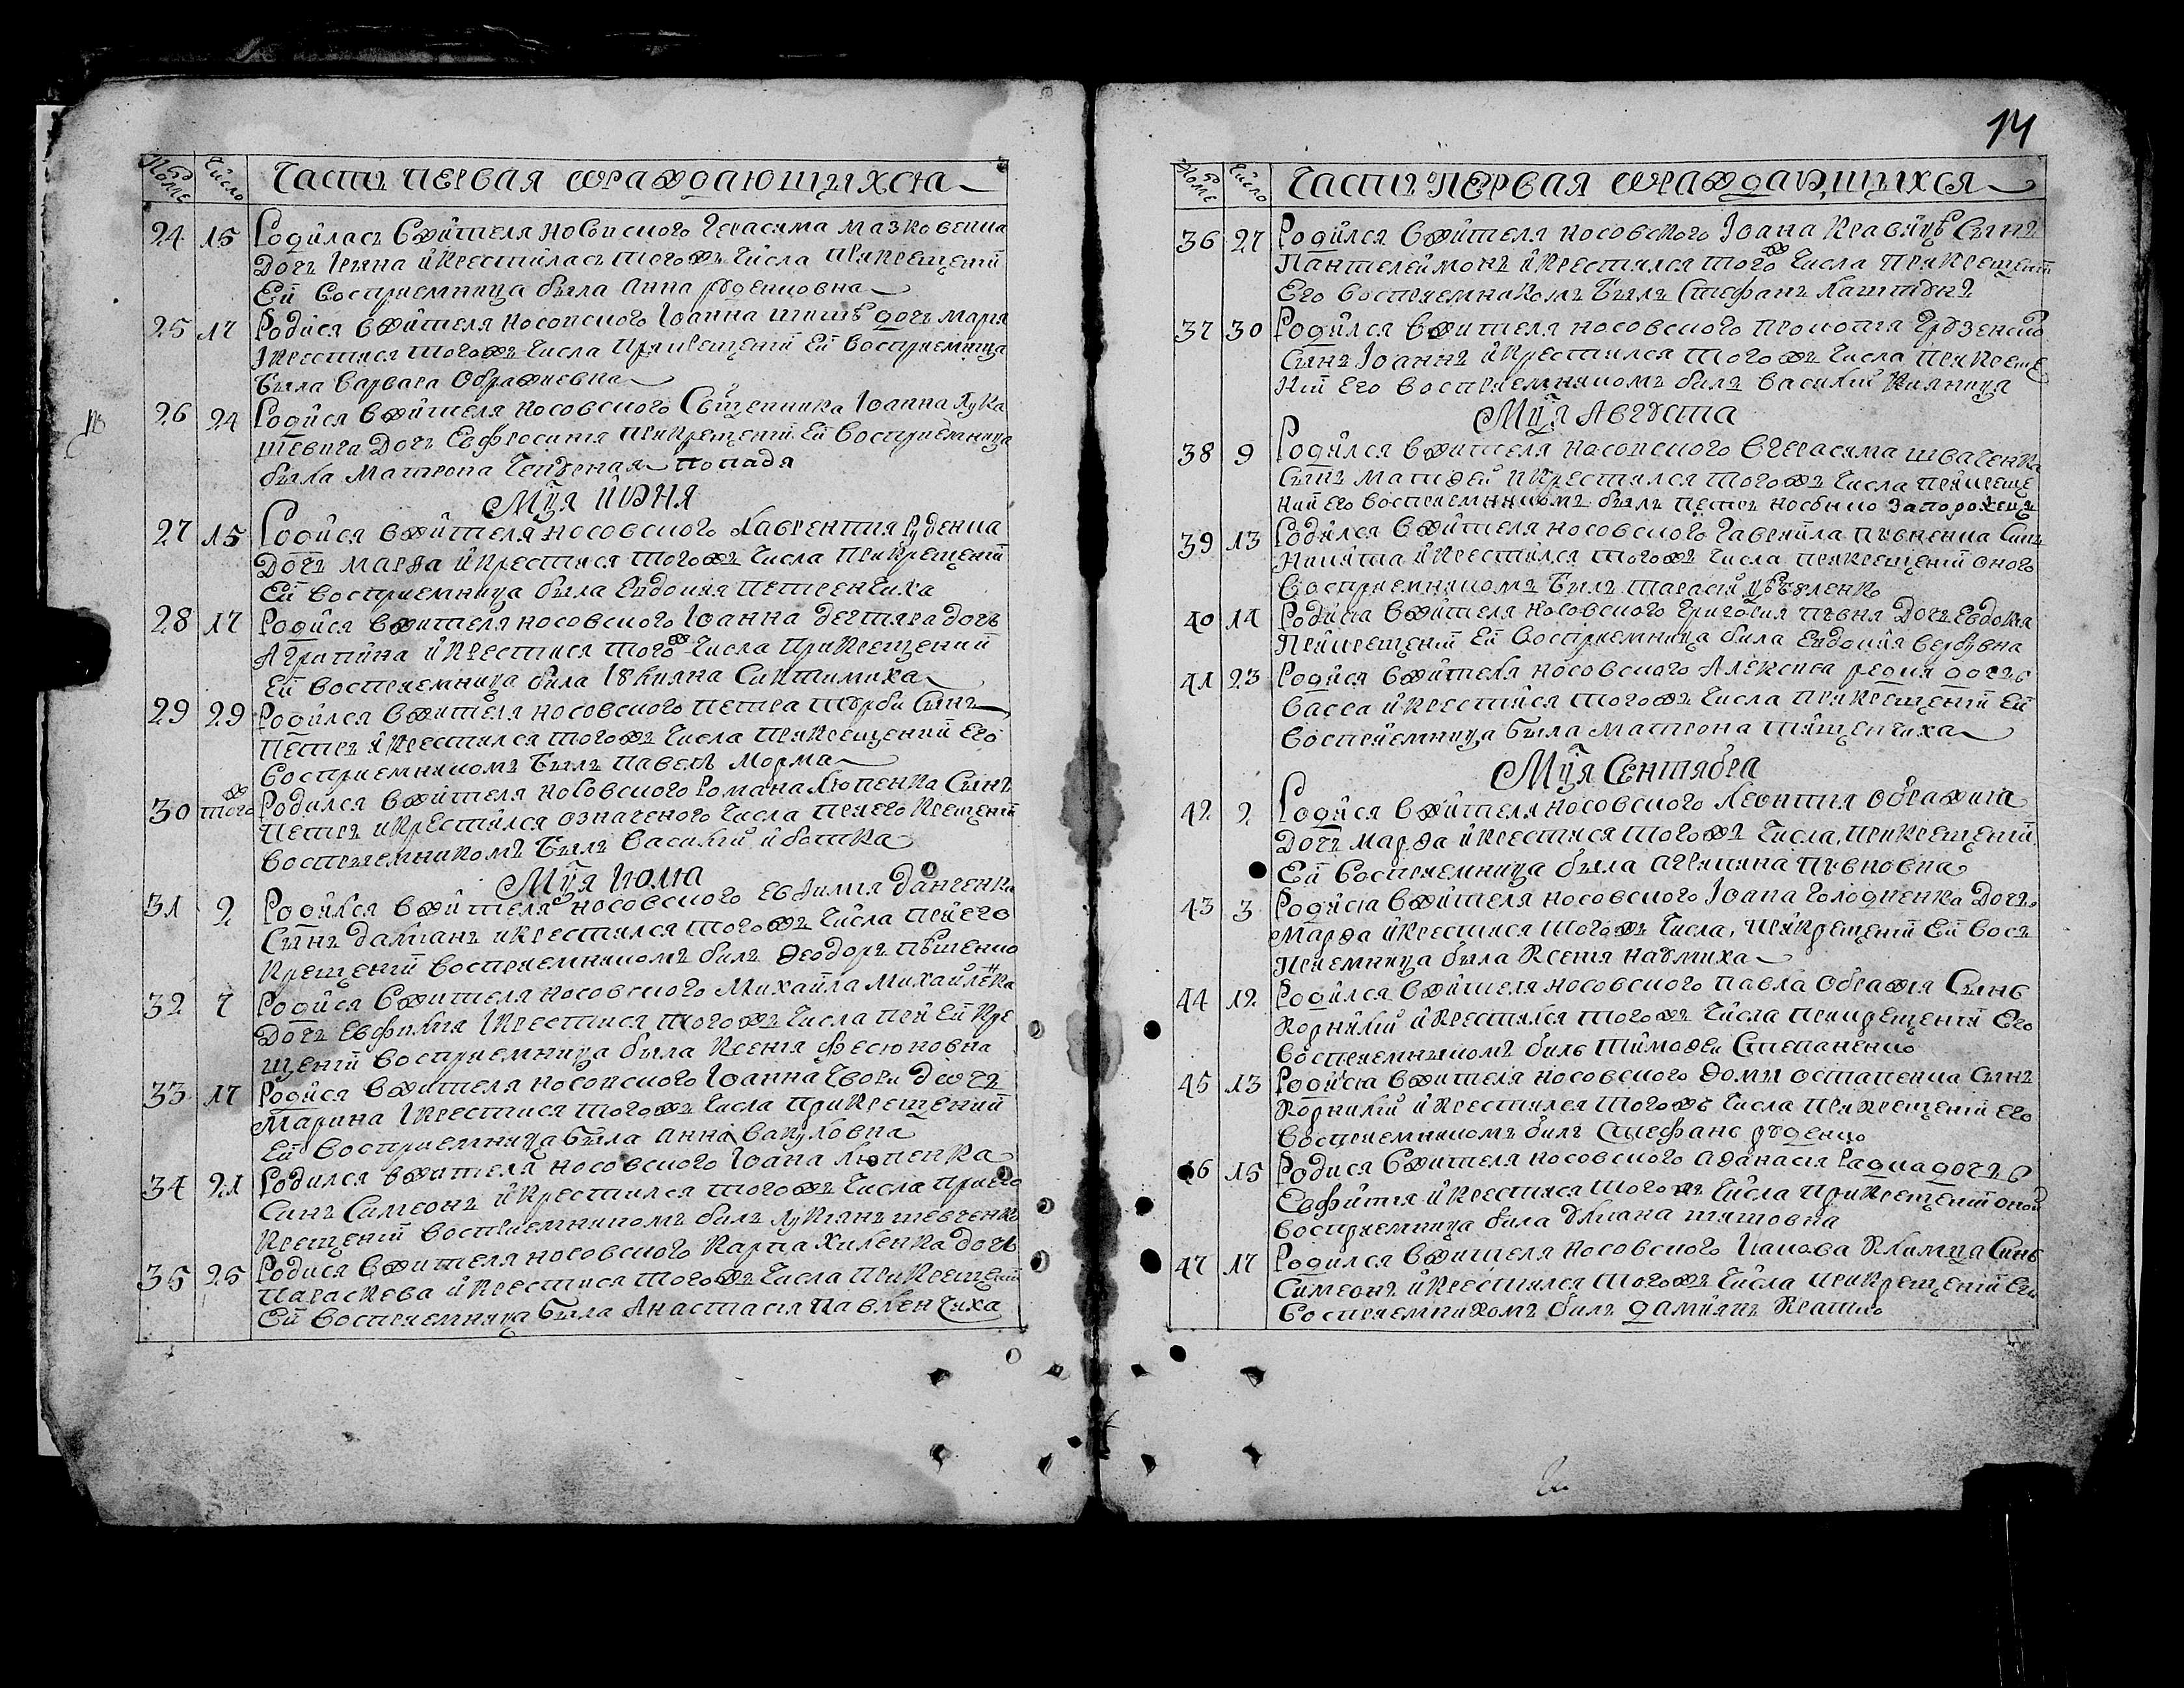 14
Номе Число Часть первая ѡраждающихся
24 15 Родилась в жителя носовского Герасима мазковенка
Дочь Ірина и крестилась того ж числа При крещенїй
Ей восприемница была Анна руденковна
25 17 Родися в жителя носовского Іоанна дочь Марія
І крестися того ж числа При крещенїй Ей восприемница
была Варвара Ображиевна
26 24 Родися в жителя носовского Священника Іоанна Лука
шевича Дочь Евфросинія При крещенїй Ей восприемница
была Матрона попадя
Мця июня
27 15 Родися в жителя носовского Лаврентия Руденка
Дочь Марѳа и крестися того ж числа При крещенїй
Ей восприемница была Евдокия Петренчиха
28 17 Родися в жителя носовского Іоанна дегтяра дочь
Агрипина и крестися того ж числа При крещений
Ей восприемница била Іулияна
29 29 Родился в жителя носовского Петра Турби Сынъ
Петръ и крестился того ж числа При крещений Его
восприемникомъ былъ Павелъ Морма
30 того ж Родился в жителя носовского Романа Люпенка Сынъ
Петръ и крестился означеного числа При его крещенїй
восприемникомъ былъ Василий
Мця июлıа
31 2 Родился в жителя носовского Евфимия Данченка
Сынъ Дамианъ и крестился того ж числа При его
крещенїй восприемникомъ билъ Ѳеодоръ
32 7 Родися в жителя носовского Михайла Михайленка
Дочь Евфимия І крестися того ж числа При Ей кре
щенїй восприемница была Ксенія Фесюновна
33 17 Родися в жителя носовского Іоанна дочъ
Марина І крестися того ж числа При крещений
Ей восприемница была Анна Вакуловна
34 21 Родился в жителя носовского Іоана Люпенка
Синъ Симеонъ и крестился того ж числа При его
крещенїй восприемникомъ билъ Лукиянъ Шевченко
35 25 Родися в жителя носовского Карпа Хиленка дочь
Параскева и крестися того ж числа При крещенїй
Ей восприемница была Анастасія Павленчиха
Номе Число Часть первая ѡраждающихся
36 27 Родился в жителя носовского Іоана Кравцѣ Сынъ
Пантелеймонъ и крестился того ж числа При крещенїй
Его восприемникомъ былъ Стефанъ
37 30 Родился в жителя носовского Прокопія
Сынъ Іоаннъ и крестился того ж числа При креще
ний Его восприемникомъ билъ Василий Кияница
Мця Августа
38 9 Родился в жителя носовского Герасима Шваченка
Сынъ Матѳей и крестился того ж числа При креще
ний его восприемникомъ былъ Петръ Запорожецъ
39 13 Родился в жителя носовского Гавриила Пѣвненка Синъ
Никита и крестился того ж числа При крещенїй оного
восприемникомъ былъ Тарасий
40 14 Родися в жителя носовского Григория Пѣвня Дочь Евдокия
При крещенїй Ей восприемница била Евдокия
41 23 Родися в жителя носовского Алексиа дочъ
Васса и крестися того ж числа При крещенїй Ей
восприемница была Матрона Тищенчиха
Мця Сентября
42 2 Родися в жителя носовского Леонтия Ображия
Дочь Марѳа и крестися того ж числа, При крещенїй
Ей восприемница была Агрипина Пѣвновна
43 3 Родися в жителя носовского Іоана Голодненка Дочь
Марѳа и крестися того ж числа, При крещенїй Ей вос
приемница была Ксенія Наумиха
44 12 Родился в жителя носовского Павла Ображия Сынъ
Корнилий и крестился того ж числа При крещенїй Его
восприемникомъ билъ Тимоѳей Степаненко
45 13 Родися в жителя носовского Ѳомы Остапенка Сынъ
Корнилий и крестился того ж числа При крещенїй его
восприемникомъ билъ Стефанъ руденко
46 15 Родися в жителя носовского Аѳанасія дочь
и крестися того ж числа При крещенїй оной
восприемница била Улиана
47 17 Родился в жителя носовского Іакова Климца Синъ
Симеонъ и крестился того ж числа При крещенїй Его
восприемникомъ билъ Дамиянъ